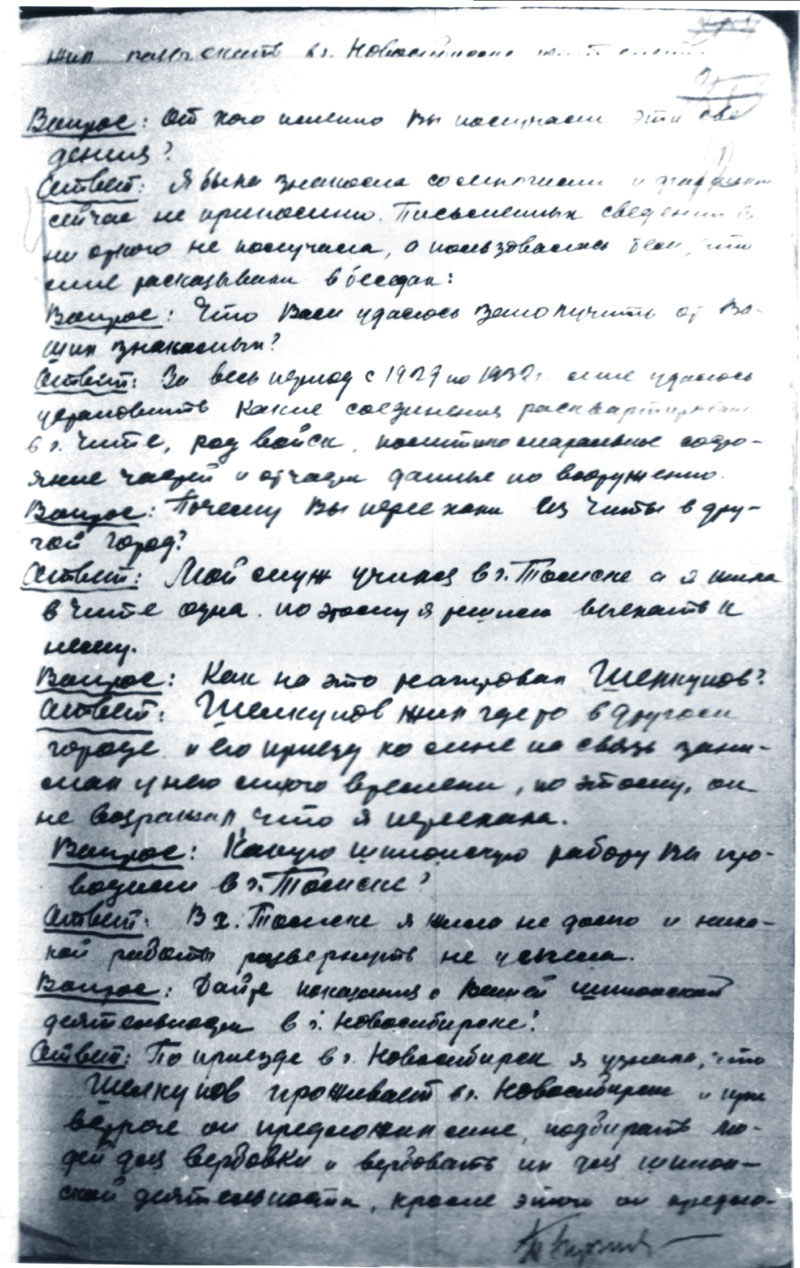 жил в г. Новосибирске
Вопрос: От кого именно Вы получали эти све
дения?
Ответ: Я была знакома со многими и фамилии
сейчас не припомню. Письменных сведений я
ни от кого не получала, а пользовалась тем, что
мне рассказывали в беседах:
Вопрос: Что Вам удалось заполучить от Ва-
ших знакомых?
Ответ: За весь период с 1929 по 1932 г. мне удалось
установить какие соединения расквартированы
в г. Чите, род войск, политико моральное состо-
яние частей и отчасти данные по вооружению.
Вопрос: Почему Вы переехали из Читы в дру-
гой город?
Ответ: Мой муж учился в г. Томске а я жила
в Чите одна. по этому я решила выехать к
нему.
Вопрос: Как на это реагировал Шелкунов?
Ответ: Шелкунов жил где то в другом
городе и его приезд ко мне на связь зани-
мал у него много времени, по этому, он
не возражал что я переехала.
Вопрос: Какую шпионскую работу Вы про-
водили в г. Томске?
Ответ: В г. Томске я жила не долго и ника-
кой работы развернуть не успела.
Вопрос: Дайте показания о Вашей шпионской
деятельности в г. Новосибирске?
Ответ: По приезде в г. Новосибирск я узнала, что
Шелкунов проживает в г. Новосибирске и при
встрече он предложил мне, подбирать лю-
дей для вербовки и вербовать их для шпион-
ской деятельности, кроме этого он предло-